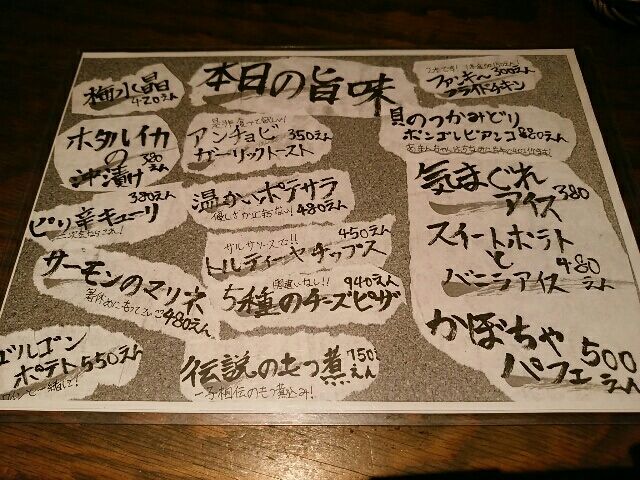 本日の旨味
梅水晶
420えん
ホタルイカ
の
沖漬け
380
えん
ピリ辛キューリ
380えん
サーモンのマリネ
480えん
ゴルゴン
ポテト 550えん
アンチョビ 350えん
ガーリックトースト
温かいポテサラ
優しさが止まらない! 480えん
サルサソースで!! 450えん
トルティーヤチップス
間違いなし!! 940えん
5種のチーズピザ
伝説のもつ煮 750えん
一子相伝のもつ煮込み!
ファンキー 300えん
フライドチキン
貝のつかみどり
ボンゴレビアンコ 880えん
気まぐれ
アイス 380
スイートポテト
と
バニラアイス 480
えん
かぼちゃ
パフェ 500
えん